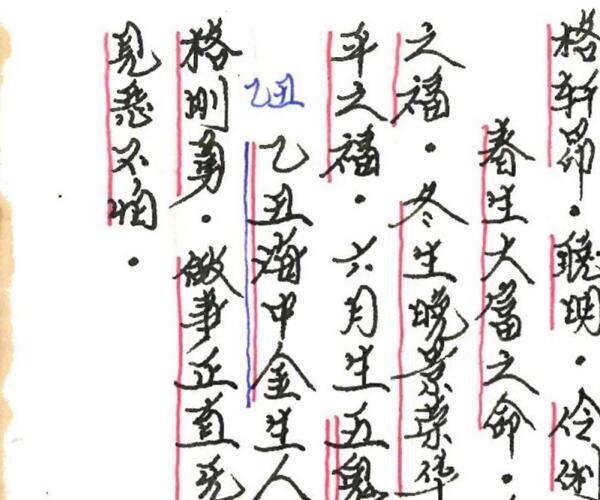 格軒昂。聰明。伶俐
春生大富之命。
之福。冬生晚景榮華
斗之福。六月生五鬼
乙丑
乙丑海中金生人
格剛勇。做事正直无
見惡不怕。